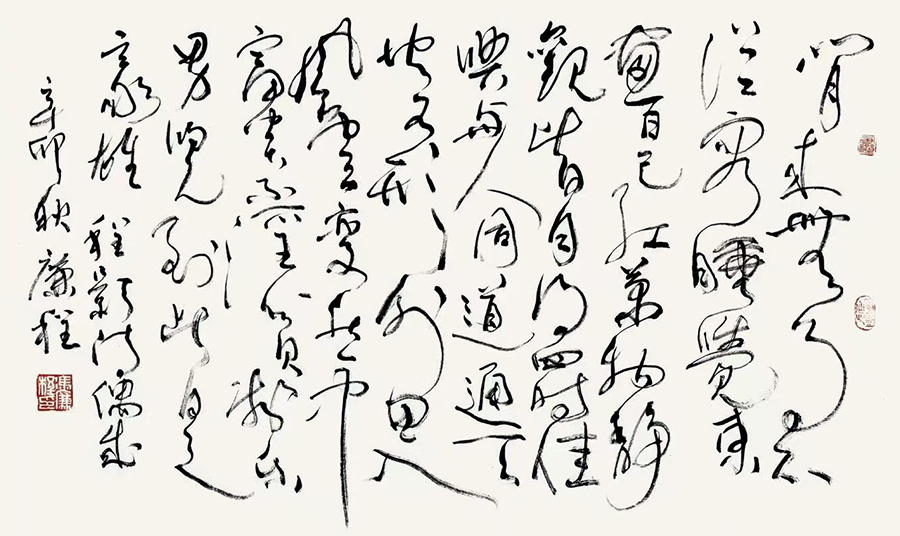 閒来無事不
從容睡覺東
窗日已红萬物静
觀皆自得四時佳
興與人同道通天
地有形外思入
風雲變態中
富貴不淫貧賤樂
男兒到此是
豪雄 程顥詩偶成
辛卯秋 廉程